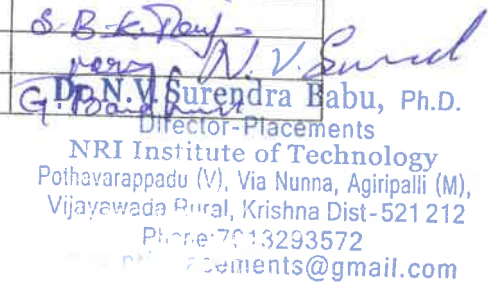 S. B. K.
N. V. Surend
Dr. N.V. Surendra Babu, Ph.D.
Director-Placements
NRI Institute of Technology
Pothavarappadu (V), Via Nunna, Agiripalli (M),
Vijayawada Rural, Krishna Dist-521 212
Phone:7013293572
ements@gmail.com